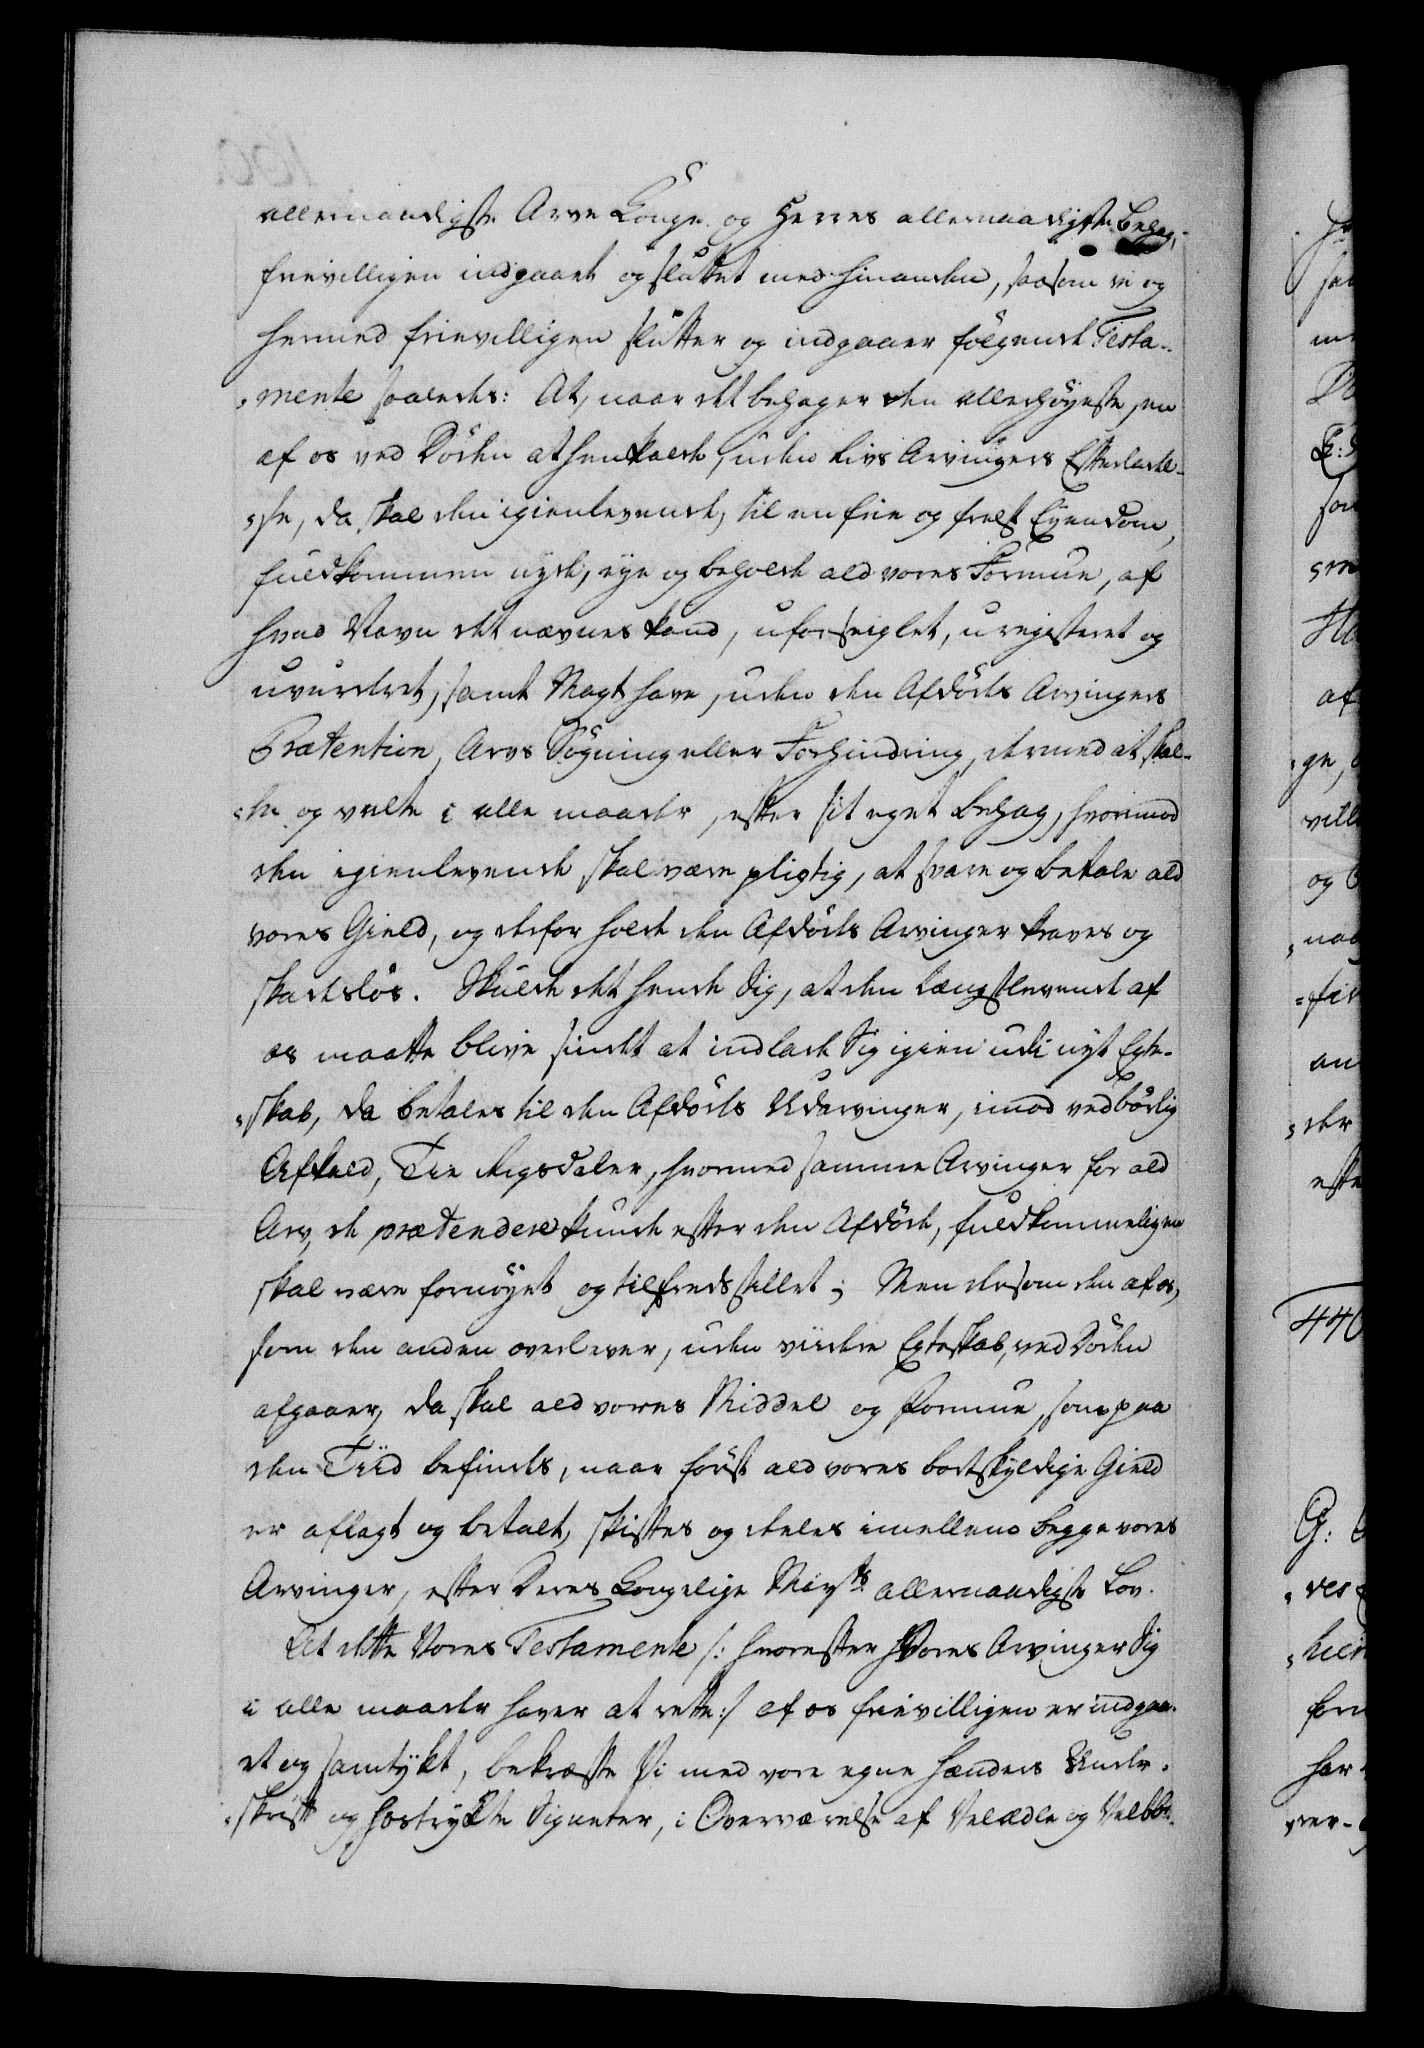 allernaadigste Arve Konge og Herres allernaadigste Behag,
frievilligen indgaaet og sluttet med hinanden, saasom vi og
hermed frievilligen slutter og indgaaer følgende Testa-
mente saaledes: At, naar det behager den allerhøyeste, en
af os ved Døden at henkalde, uden Livs Arvingers Efterlade-
lse, da skal den igienlevende, til en frie og frelst Eyendom,
fuldkommen nyde, eye og beholde ald vores Formue, af
hvad Navn det nævnes kand, uforseiglet, uregisteret og
uvurderet, samt Magt have, uden den Afdødes Arvingers
Prætention, Arvs Søgning eller Forhindring, dermed at skal-
te og valte i alle maader, efter sit eget Behag, hvorimod
den igienlevende skal være pligtig, at svare og betale ald
vores Gield, og derfor holde den Afdødes Arvinger kraves og
skadesløs. Skulde det hende sig, at den Længstlevende af
os maatte blive sindet at indlade Sig igien udi nyt Egte-
skab, da betales til den Afdødes Udarvinger, imod vedbørlig
Afkald, Tie Rigsdaler, hvormed samme Arvinger for ald
Arv, de prætendere kunde efter den Afdøde, fuldkommeligen
skal være fornøyet og tilfredsstillet; Men dersom den af os,
som den anden overlever, uden viidere Egteskab, ved Døden
afgaaer, da skal ald vores Middel og Formue, som paa
den Tiid befindes, naar først ald vores bortskyldige Gield
er aflagt og betalt, skiftes og deeles imellem begge vores
Arvinger, efter Deres Kongelige Mayts allernaadigste Lov.
At dette Vores Testamente /: hvorefter Vores Arvinger Sig
i alle maader haver at rette :/ af os frievilligen er indgaa-
et og samtykt, bekræfte Vi med vore egne Hænders Under-
skrift og hostrykte Signeter, i Overværelse af Velædle og Velb: